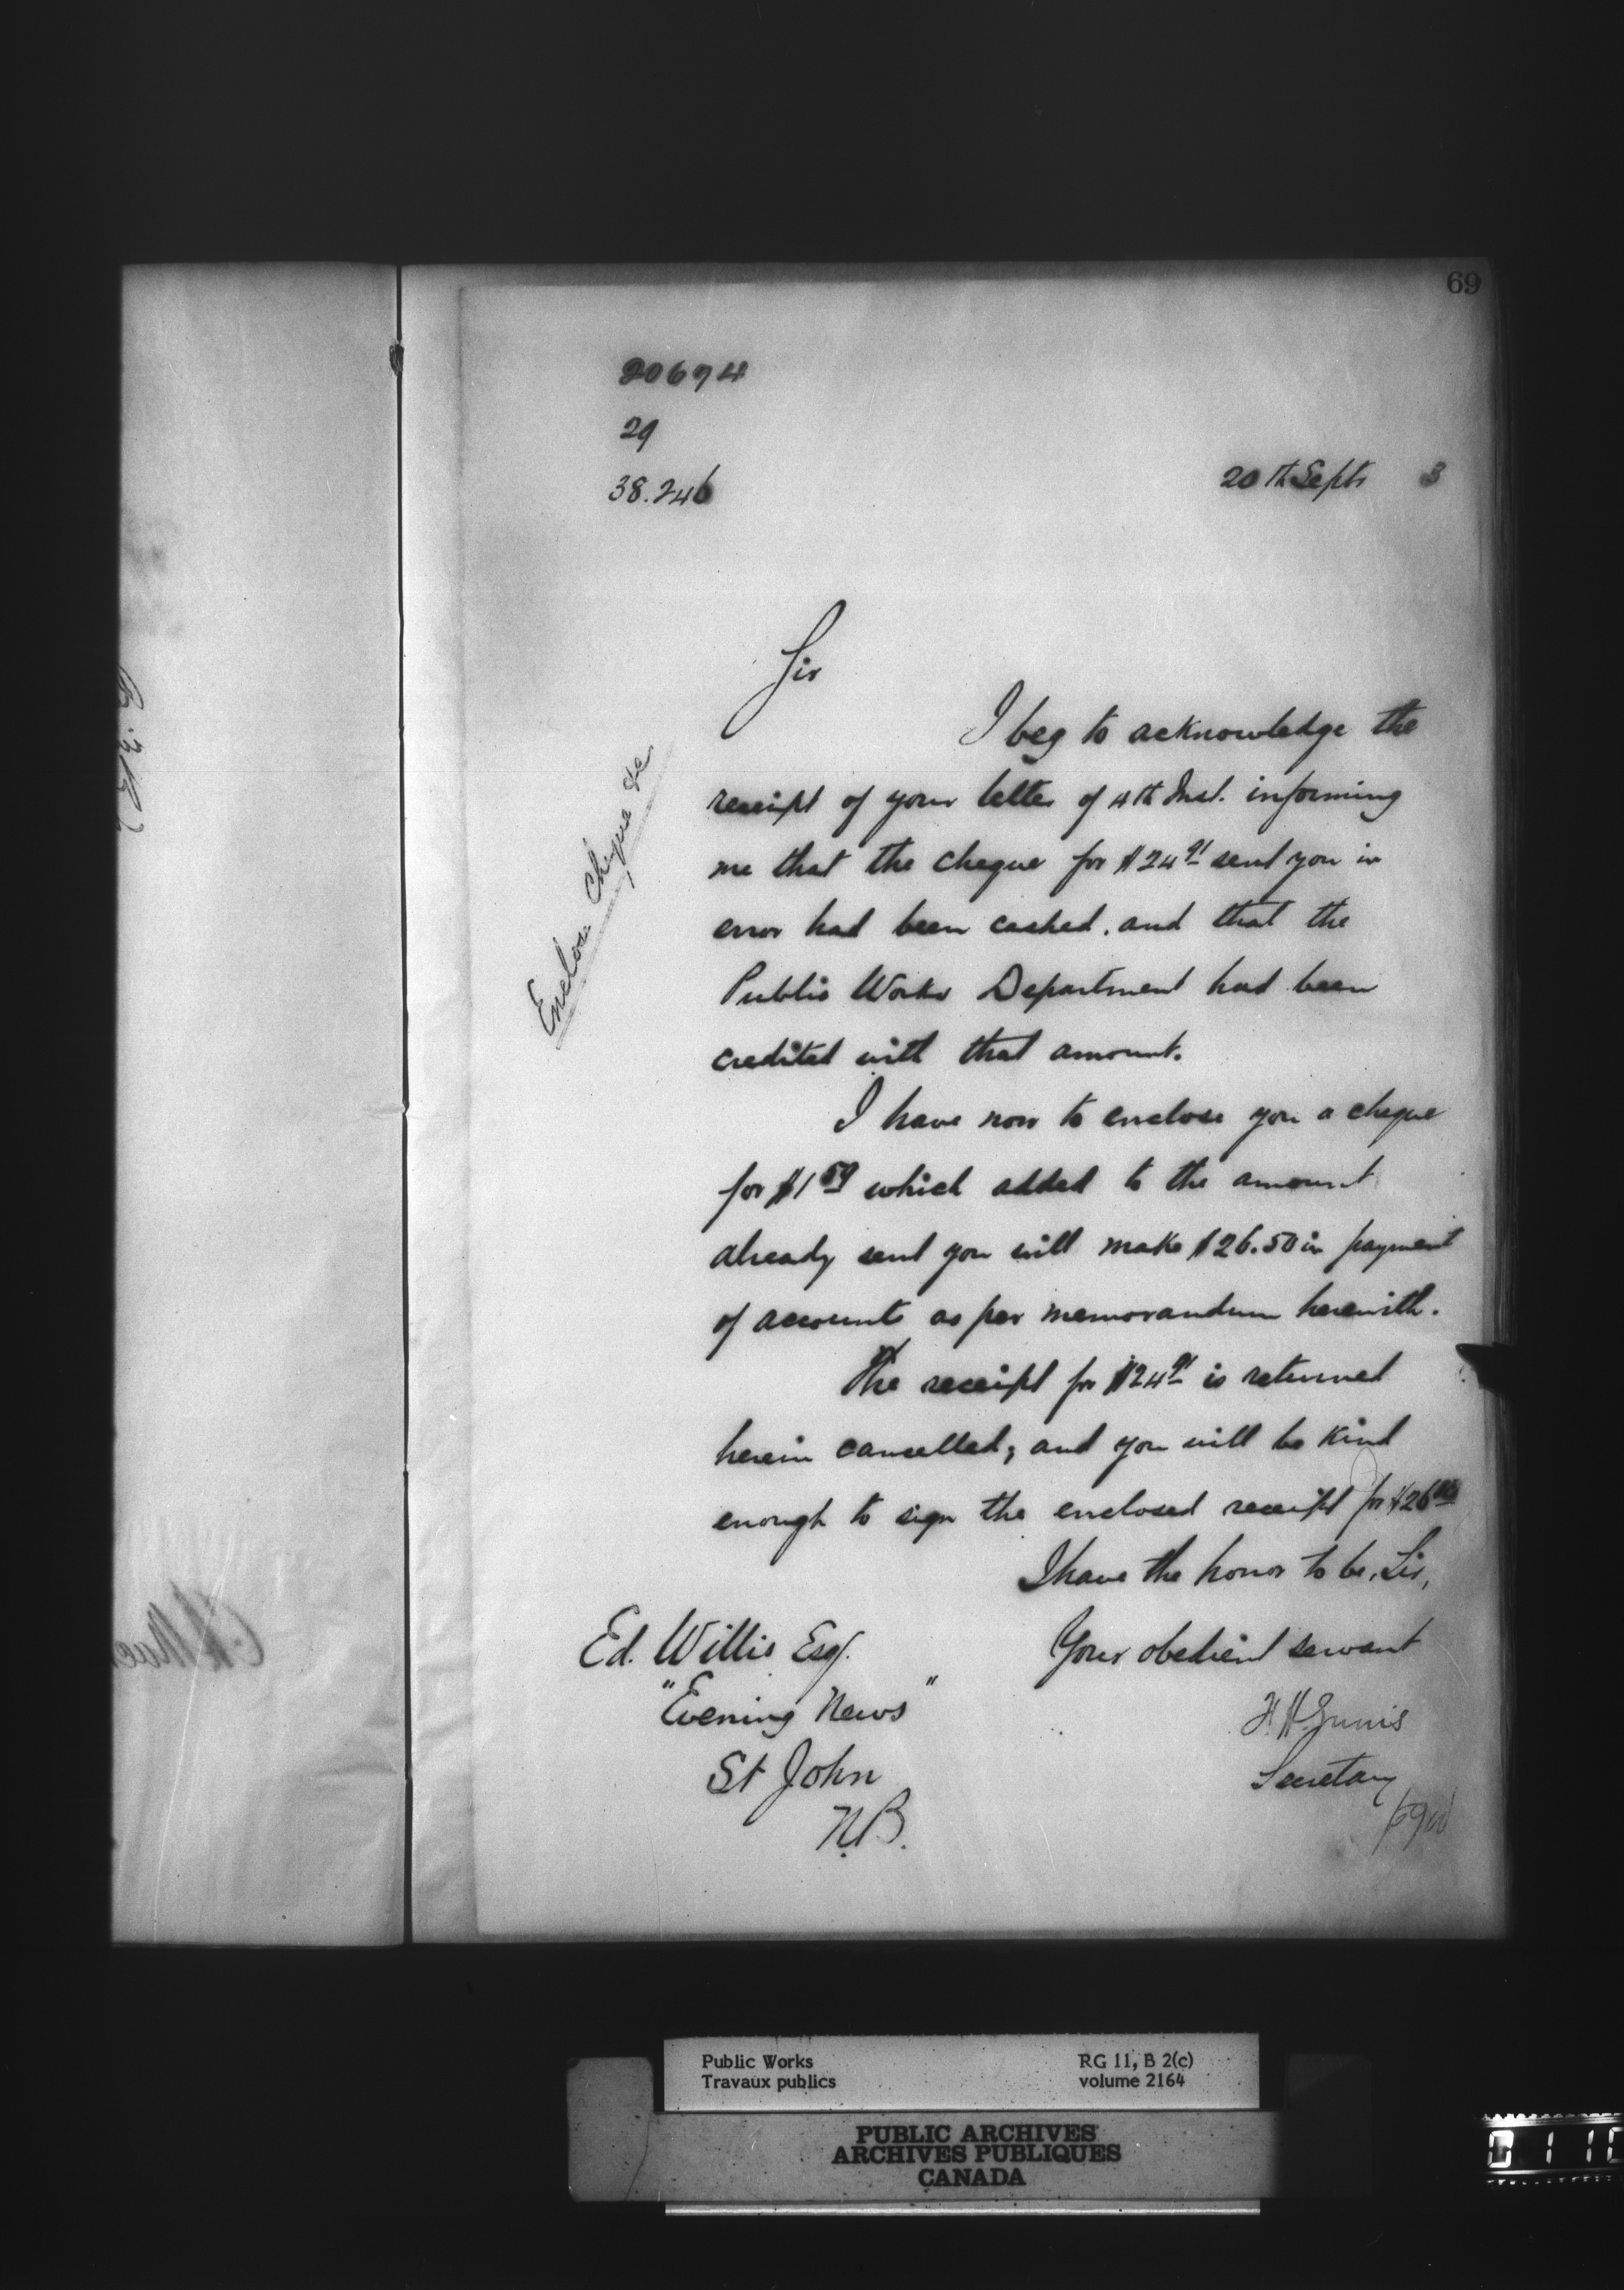 69
20674
29
38.246
20th Septr 3
Enclose Cheque &c
Sir
I beg to acknowledge the
receipt of your letter of 4th Inst. informing
me that the cheque for $24 91 sent you in
error had been cashed. and that the
Public Works Department had been
credited with that amount.
I have now to enclose you a cheque
for $1 59 which added to the amount
already sent you will make $26.50 in payment
of accounts as per memorandum herewith.
The receipt for $24 91 is returned
herein cancelled; and you will be kind
enough to sign the enclosed receipt for $26 50
I have the honor to be, Sir,
Your obedient servant
Ed. Willis Esq.
"Evening News"
St John
N.B.
Secretary
Public Works
Travaux publics
RG 11, B 2(c)
volume 2164
PUBLIC ARCHIVES
ARCHIVES PUBLIQUES
CANADA